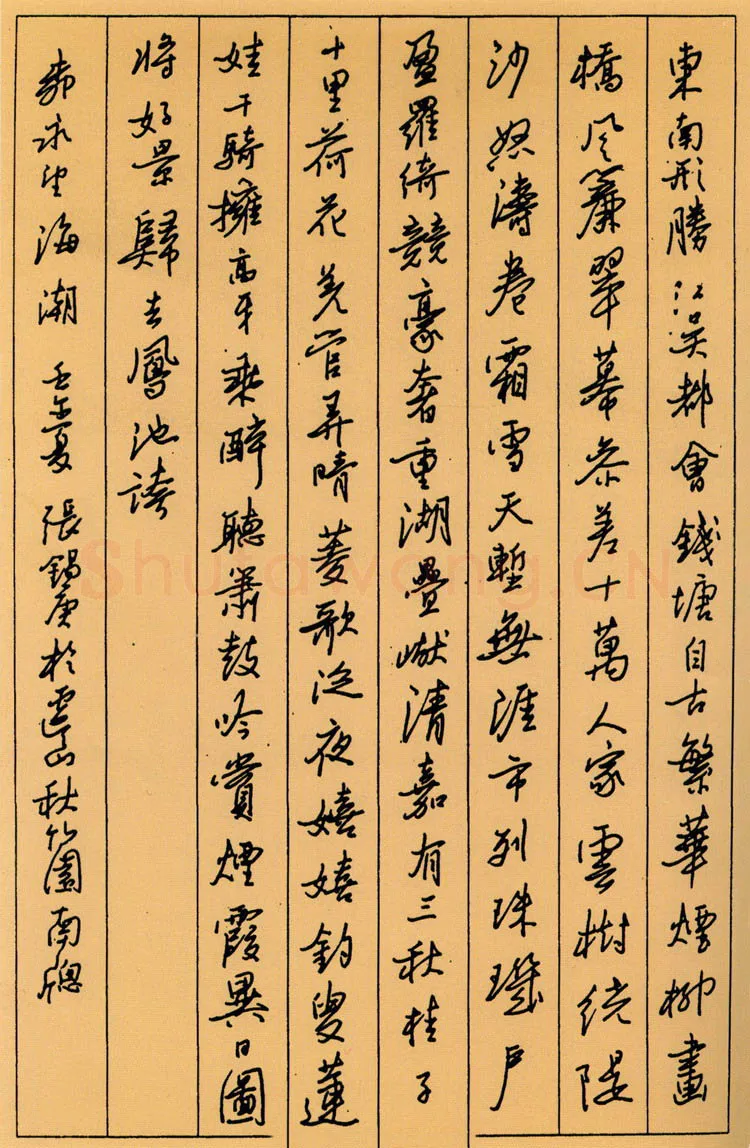 東南形勝江吴都會錢塘自古繁華煙柳畫
橋風簾翠幕參差十萬人家雲樹繞隄
沙怒濤卷霜雪天塹無涯市列珠璣户
盈羅綺競豪奢重湖疊巘清嘉有三秋桂子
十里荷花羌管弄晴菱歌泛夜嬉嬉釣叟蓮
娃千騎擁高牙乘醉聽簫鼓吟賞煙霞異日圖
將好景歸去鳳池誇
柳永望海潮 壬夏 張錫庚於山秋竹園南牕
Shufawang.CN